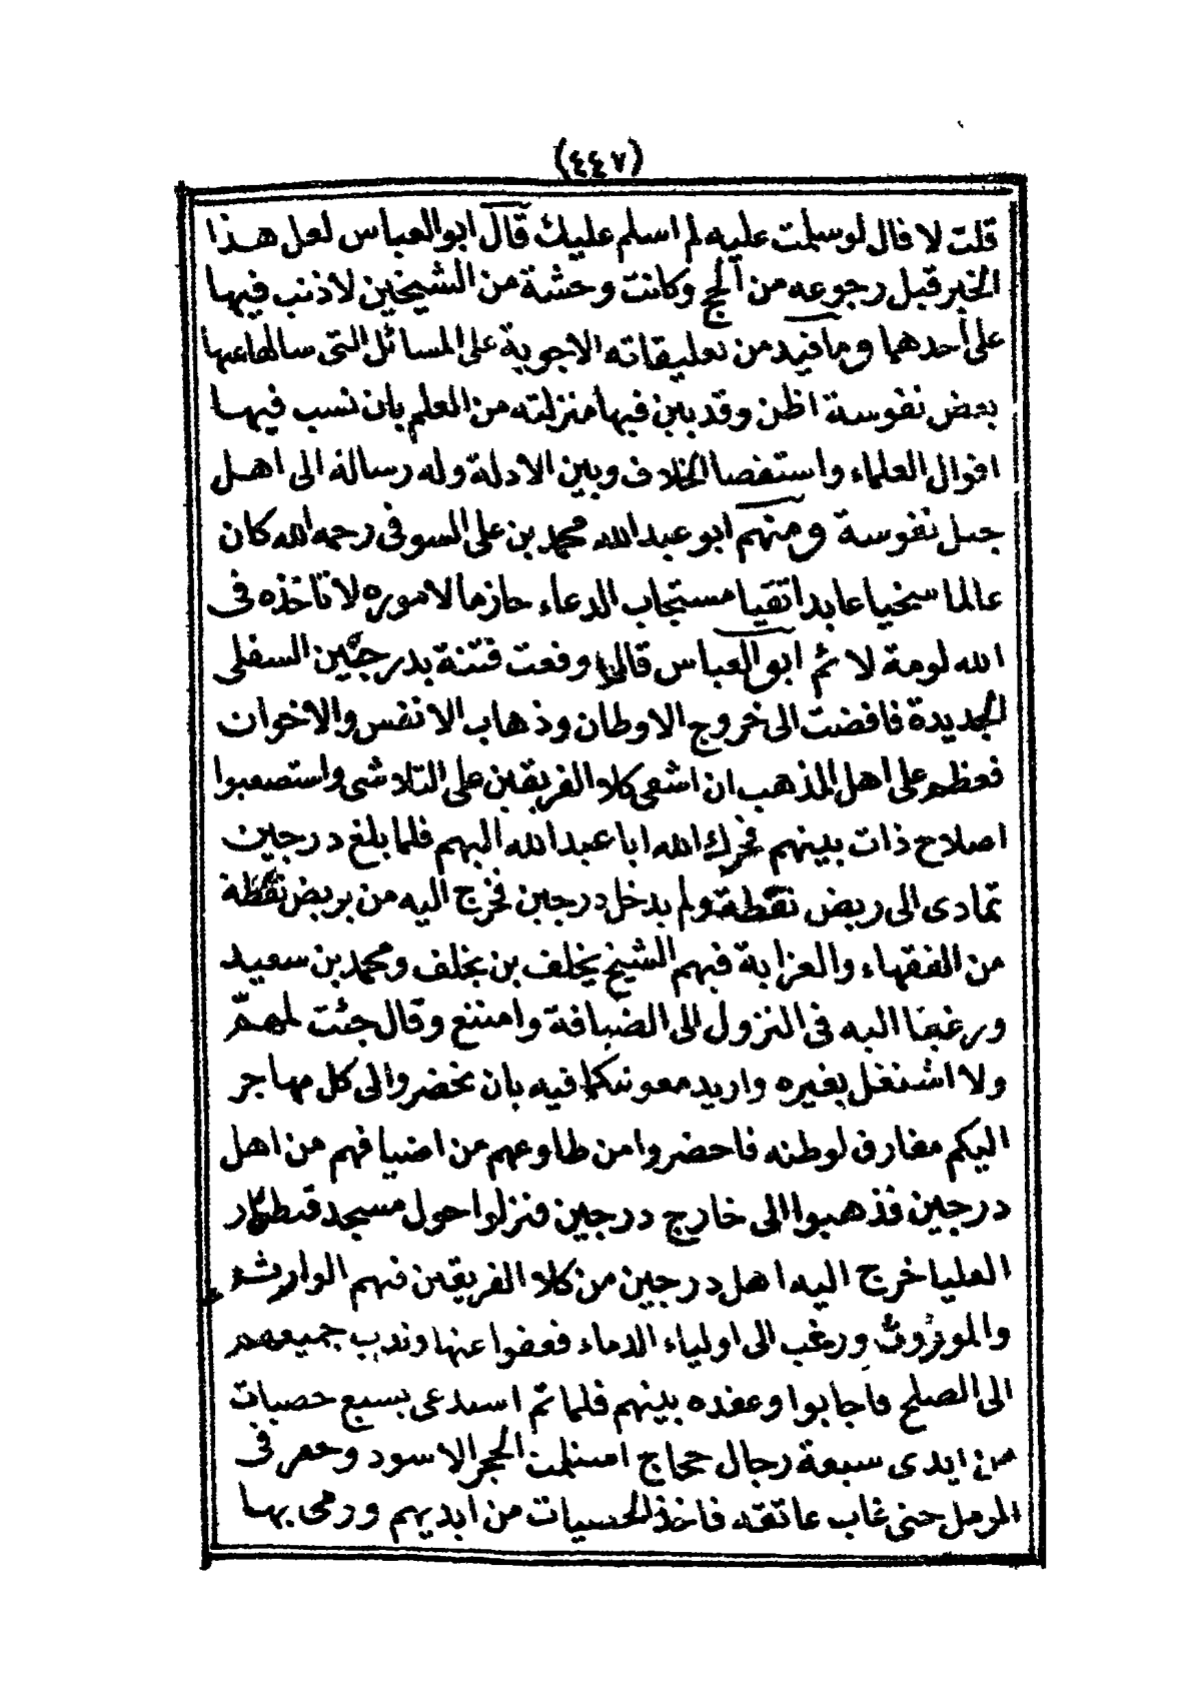 (٤٤٧)
قلت لا قال لو سلمت عليه لم اسلم عليك قال ابو العباس لعل هذا
الخبر قبل رجوعه من الحج وكانت وحشة من الشيخين لا ذنب فيها
على أحدهما وما قيد من تعليقاته الاجوبة على المسائل التى سالها عنها
بعض نفوسة اظن وقد بين فيها منزلته من العلم بان نسب فيها
اقوال العلماء واستقصا الخلاف وبين الادلة وله رسالة الى اهل
جبل نفوسة ومنهم ابو عبد الله محمد بن على السوفى رحمه الله كان
عالما سخيا عابدا تقيا مستجاب الدعاء حازما لاموره لا تاخذه فى
الله لومة لائم ابو العباس قال وقعت فتنة بدرجين السفلى
الجديدة فافضت الى خروج الاوطان وذهاب الانفس والاخوان
فعظم على اهل المذهب ان اشفى كلا الفريقين على التلاشى واستصعبوا
اصلاح ذات بينهم فحرك الله ابا عبد الله اليهم فلما بلغ درجين
تمادى الى ربض نفطة ولم يدخل درجين فخرج اليه من بربض نفطة
من الفقهاء والعزابة فيهم الشيخ يخلف بن يخلف ومحمد بن سعيد
ورغبا اليه فى النزول الى الضيافة وامتنع وقال جئت لمهم
ولا اشتغل بغيره واريد معونتكما فيه بان تحضروا الى كل مهاجر
اليكم مفارق لوطنه فاحضروا من طاوعهم من اضيافهم من اهل
درجين فذهبوا الى خارج درجين فنزلوا حول مسجد قنطرار
العليا خرج اليه اهل درجين من كلا الفريقين فيهم الوارث
والموروث ورغب الى اولياء الدماء فعفوا عنها وندب جميعهم
الى الصلح فاجابوا وعقده بينهم فلما تم استدعى بسبع حصيات
من ايدى سبعة رجال حجاج استلمت الحجر الاسود وحفر فى
الرمل حتى غاب عاتقه فاخذ الحسيات من ايديهم ورمى بها